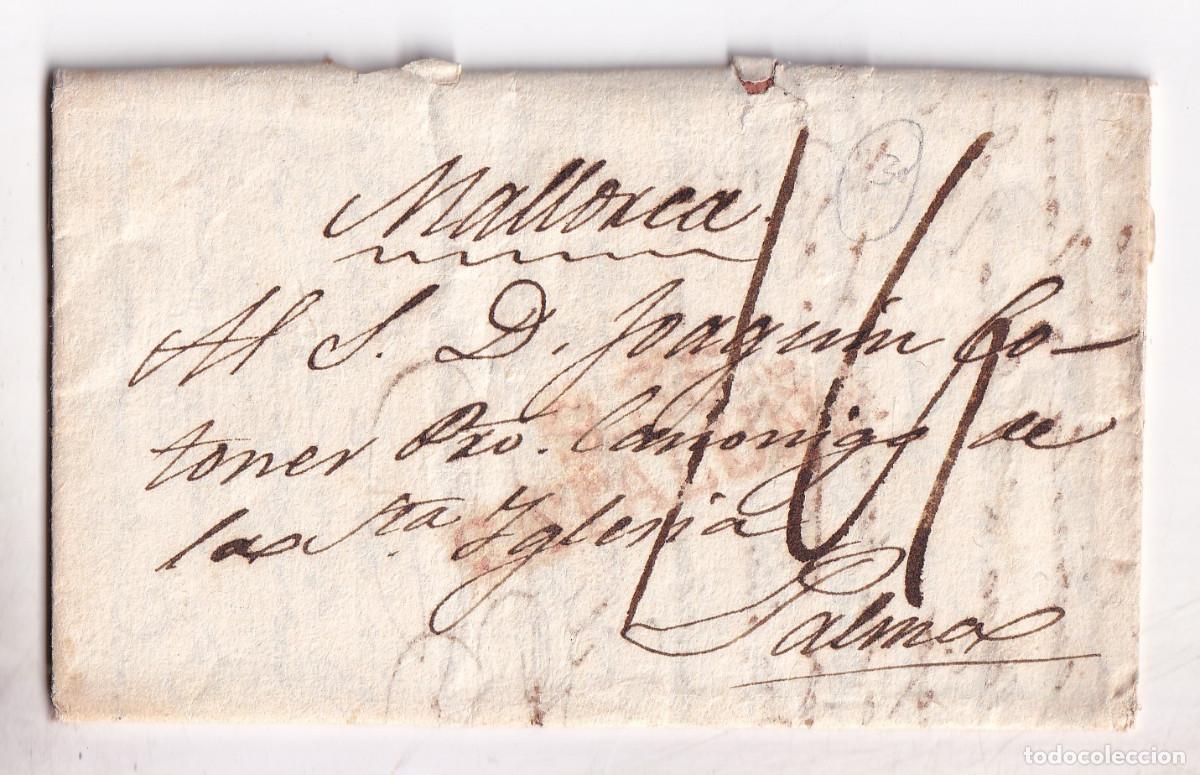 Mallorca
Al S. D. Joaquin Co-
toner Pro. Canonigo de
la Sta Yglesia
Palma
todocoleccion